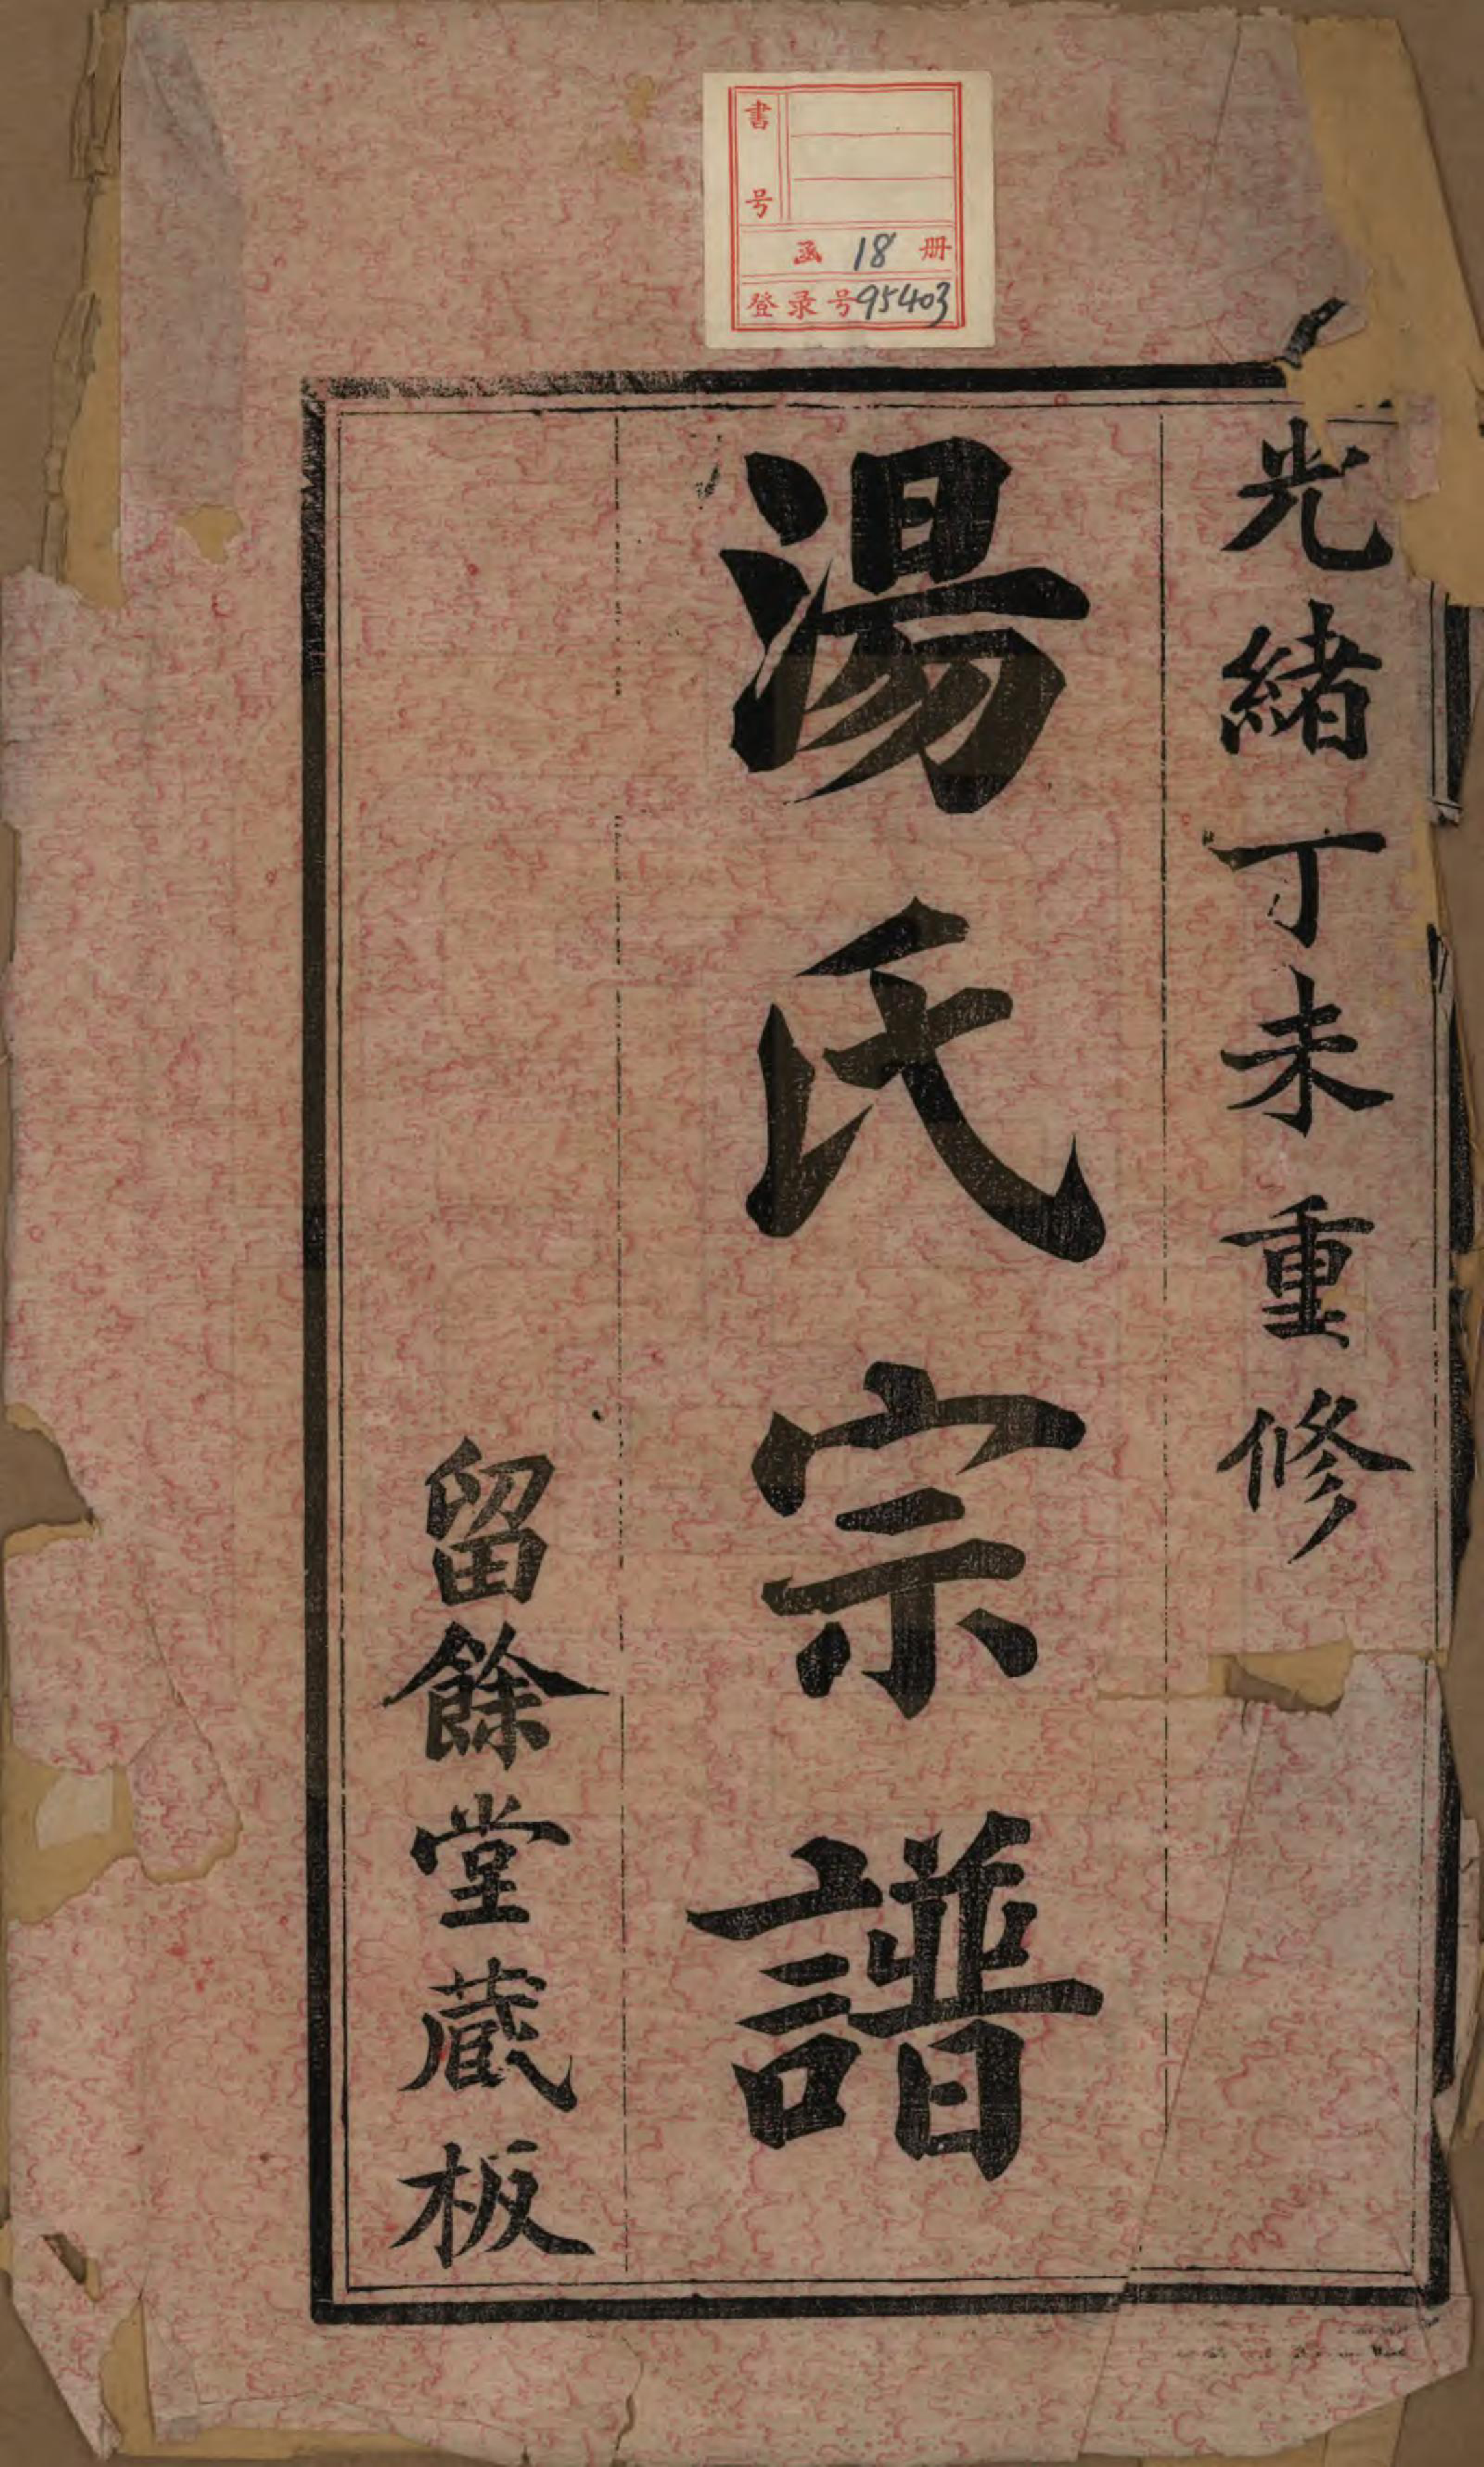 書号
函 18 册
登录号95403
光緒丁未重修
湯氏宗譜
留餘堂蔵板